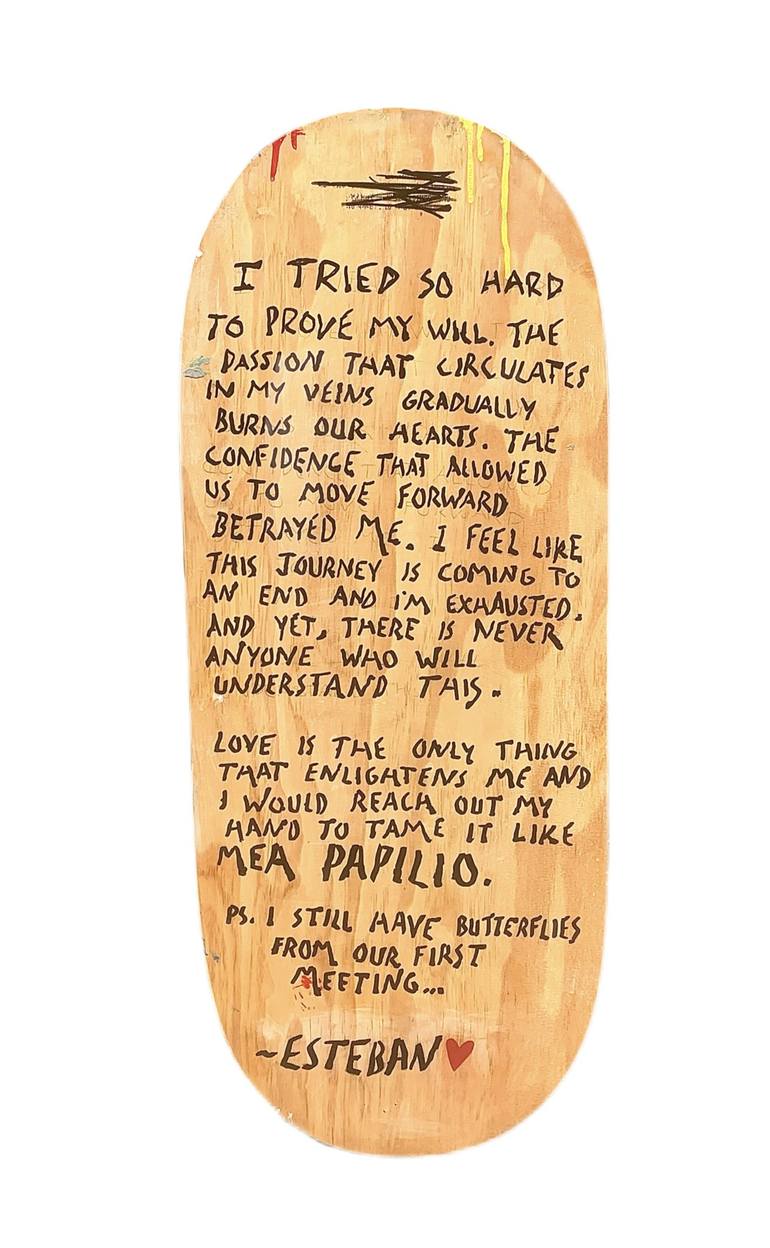 I TRIED SO HARD
TO PROVE MY WILL. THE
PASSION THAT CIRCULATES
IN MY VEINS GRADUALLY
BURNS OUR HEARTS. THE
CONFIDENCE THAT ALLOWED
US TO MOVE FORWARD
BETRAYED ME. I FEEL LIKE
THIS JOURNEY IS COMING TO
AN END AND I'M EXHAUSTED.
AND YET, THERE IS NEVER
ANYONE WHO WILL
UNDERSTAND THIS.
LOVE IS THE ONLY THING
THAT ENLIGHTENS ME AND
I WOULD REACH OUT MY
HAND TO TAME IT LIKE
MEA PAPILIO.
PS. I STILL HAVE BUTTERFLIES
FROM OUR FIRST
MEETING...
~ESTEBAN♥